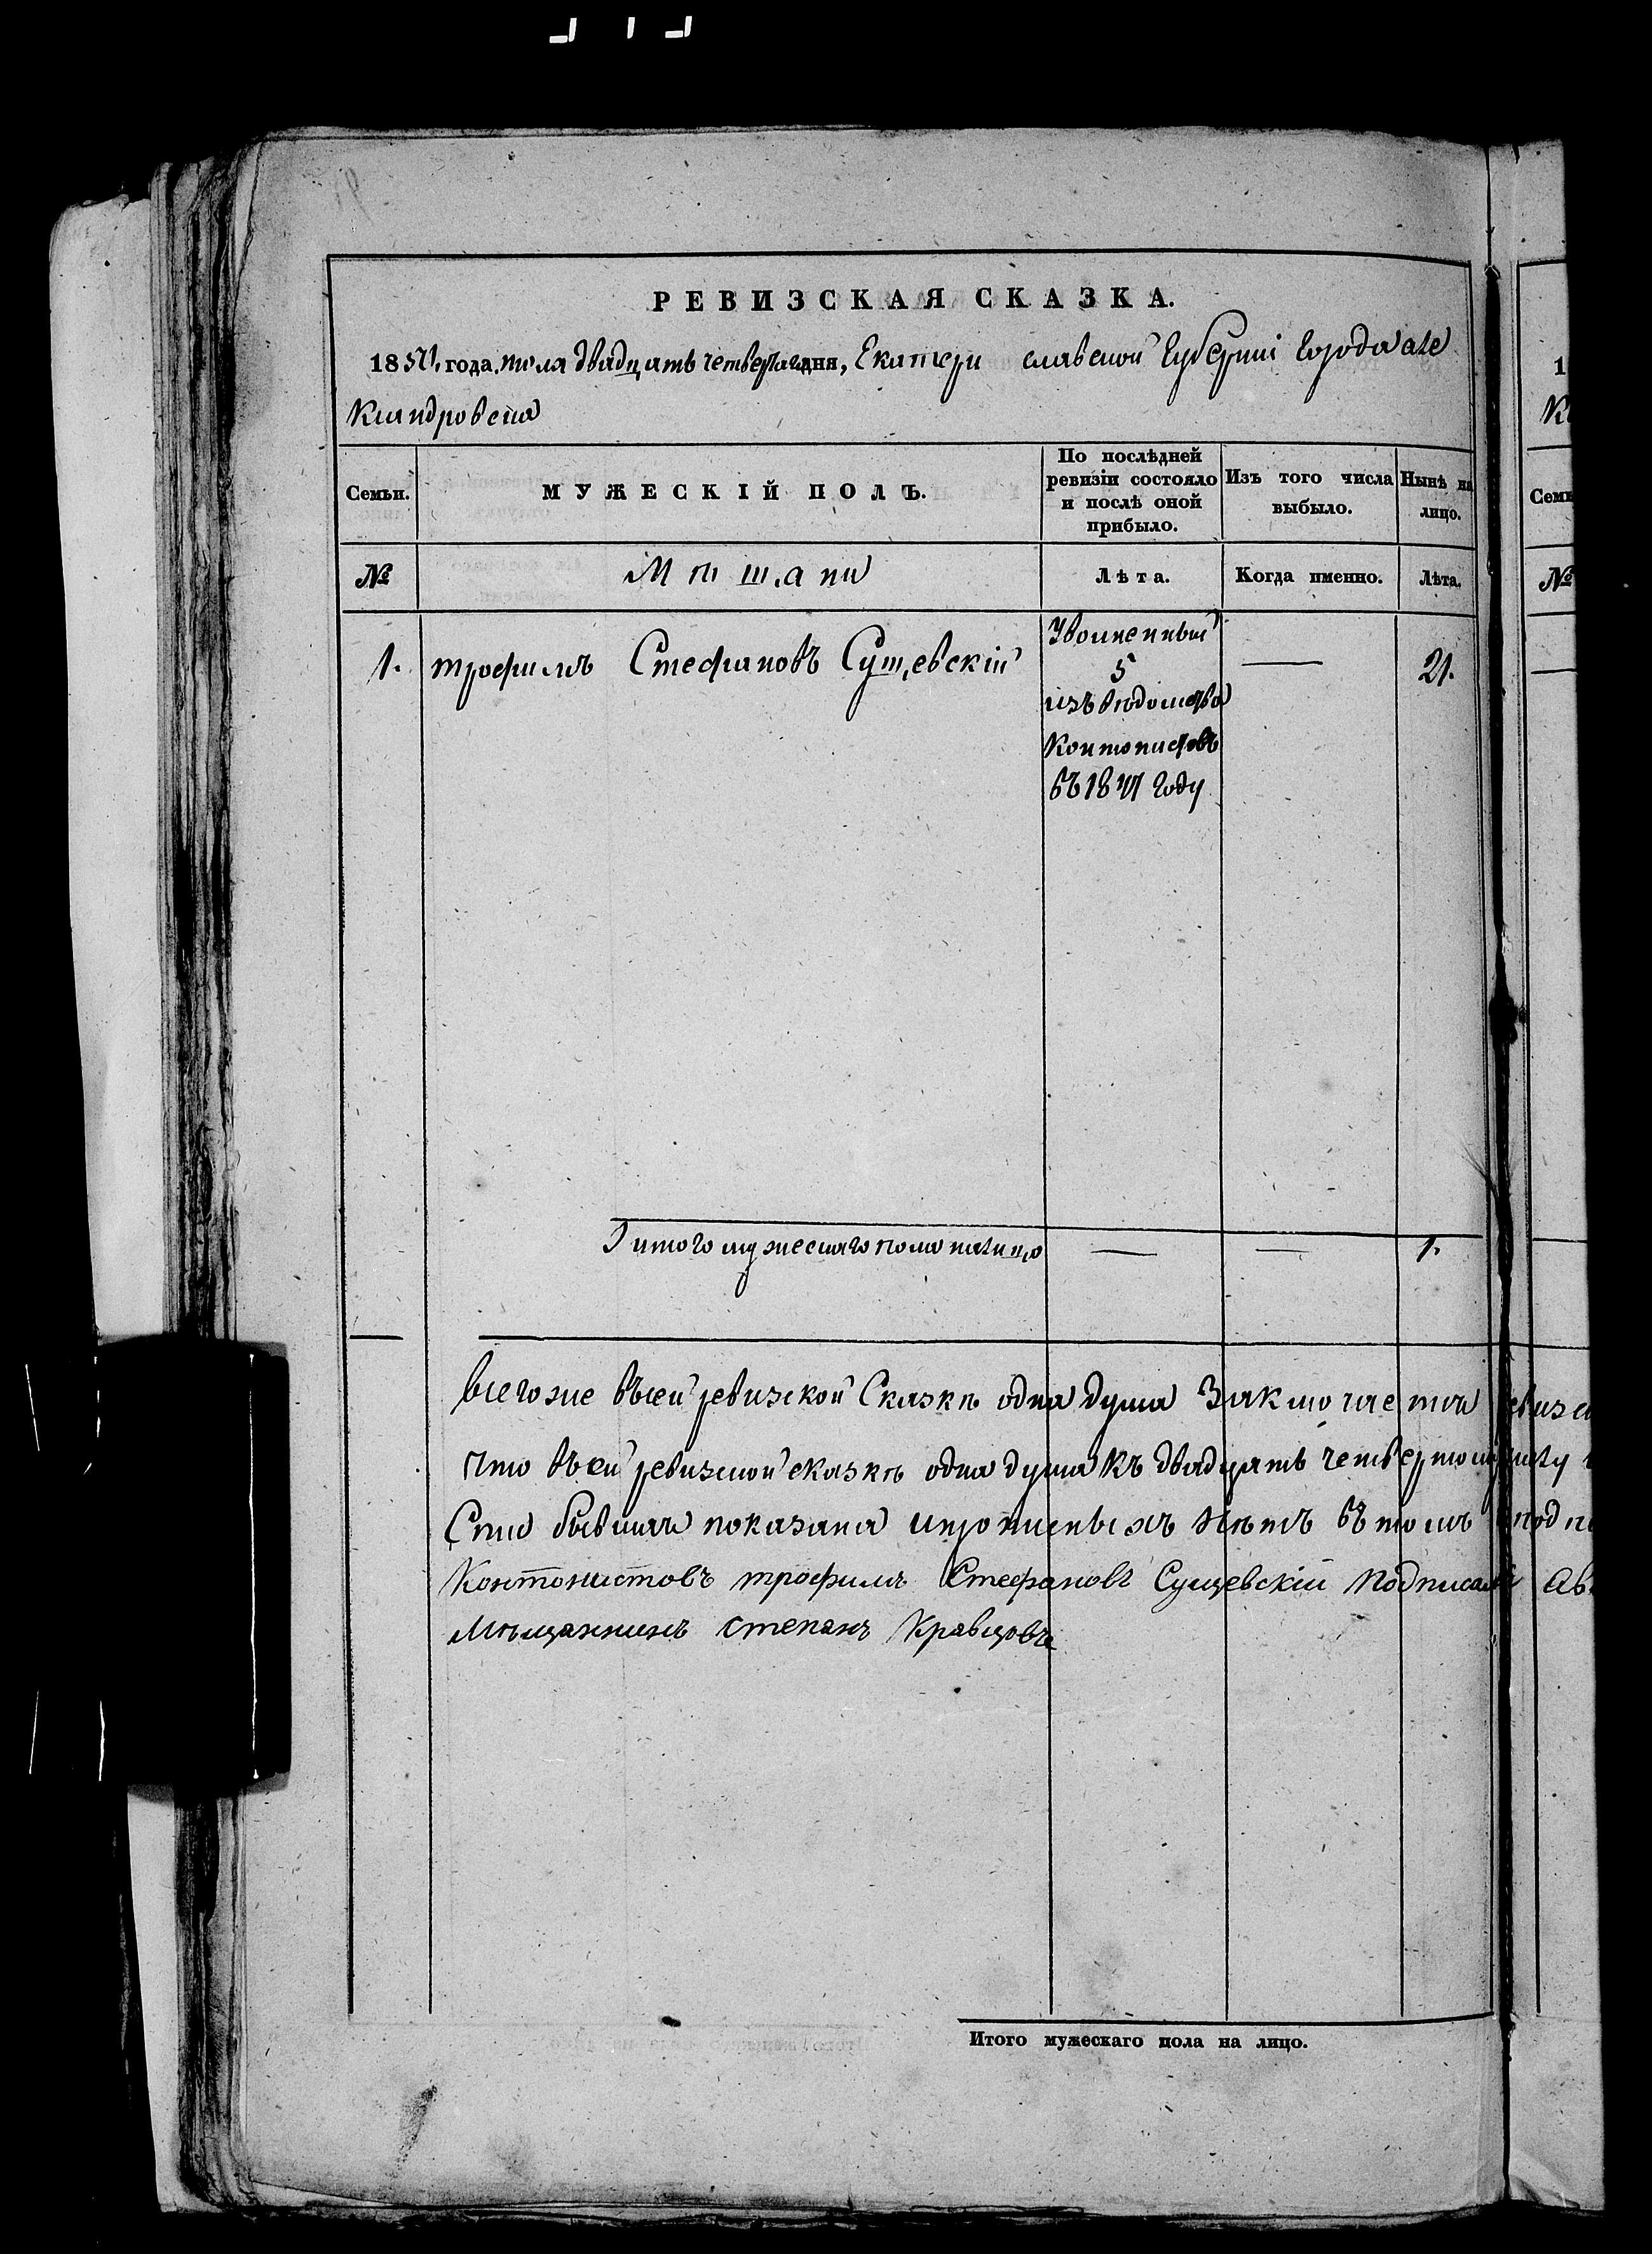 РЕВИЗСКАЯ СКАЗКА.
1850. года, июля двадцать четвертаго дня, Екатери славской Губерніи Города Але
ксандровска
Семьи. МУЖЕСКІЙ ПОЛЪ. По послѣдней ревизіи состояло и послѣ оной прибыло. Изъ того числа выбыло. Нынѣ на лицо.
№ Мѣщани Лѣта. Когда именно. Лѣта.
1. трофимъ Стефановъ Сущевскій Уволненный — 21.
5
изъ вѣдомства
Контонистовъ
въ 18 году
Итого мужескаго пола налицо — — 1.
Всегоже въсей ревизской Сказкѣ одна душа Заключается
Что въсей ревизской сказкѣ одна душа Къ двадцать четвертому
бывшая показана ипрописныхъ Нѣтъ въ томъ
Контонистовъ трофимъ Стефановъ Сущевскій Подписалъ
Мѣщанинъ степанъ Кравцовъ
Итого мужескаго пола на лицо.
1
К
Семь
№